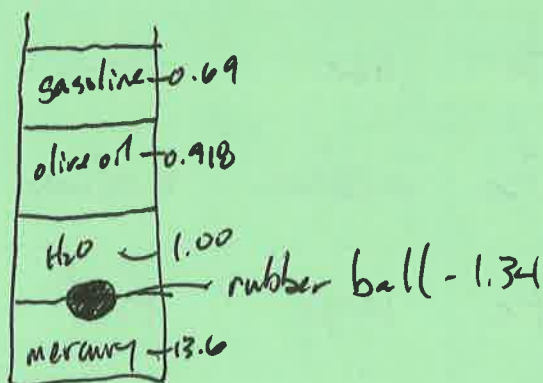 gasoline - 0.69
olive oil - 0.918
H2O 1.00
rubber ball - 1.34
mercury - 13.6